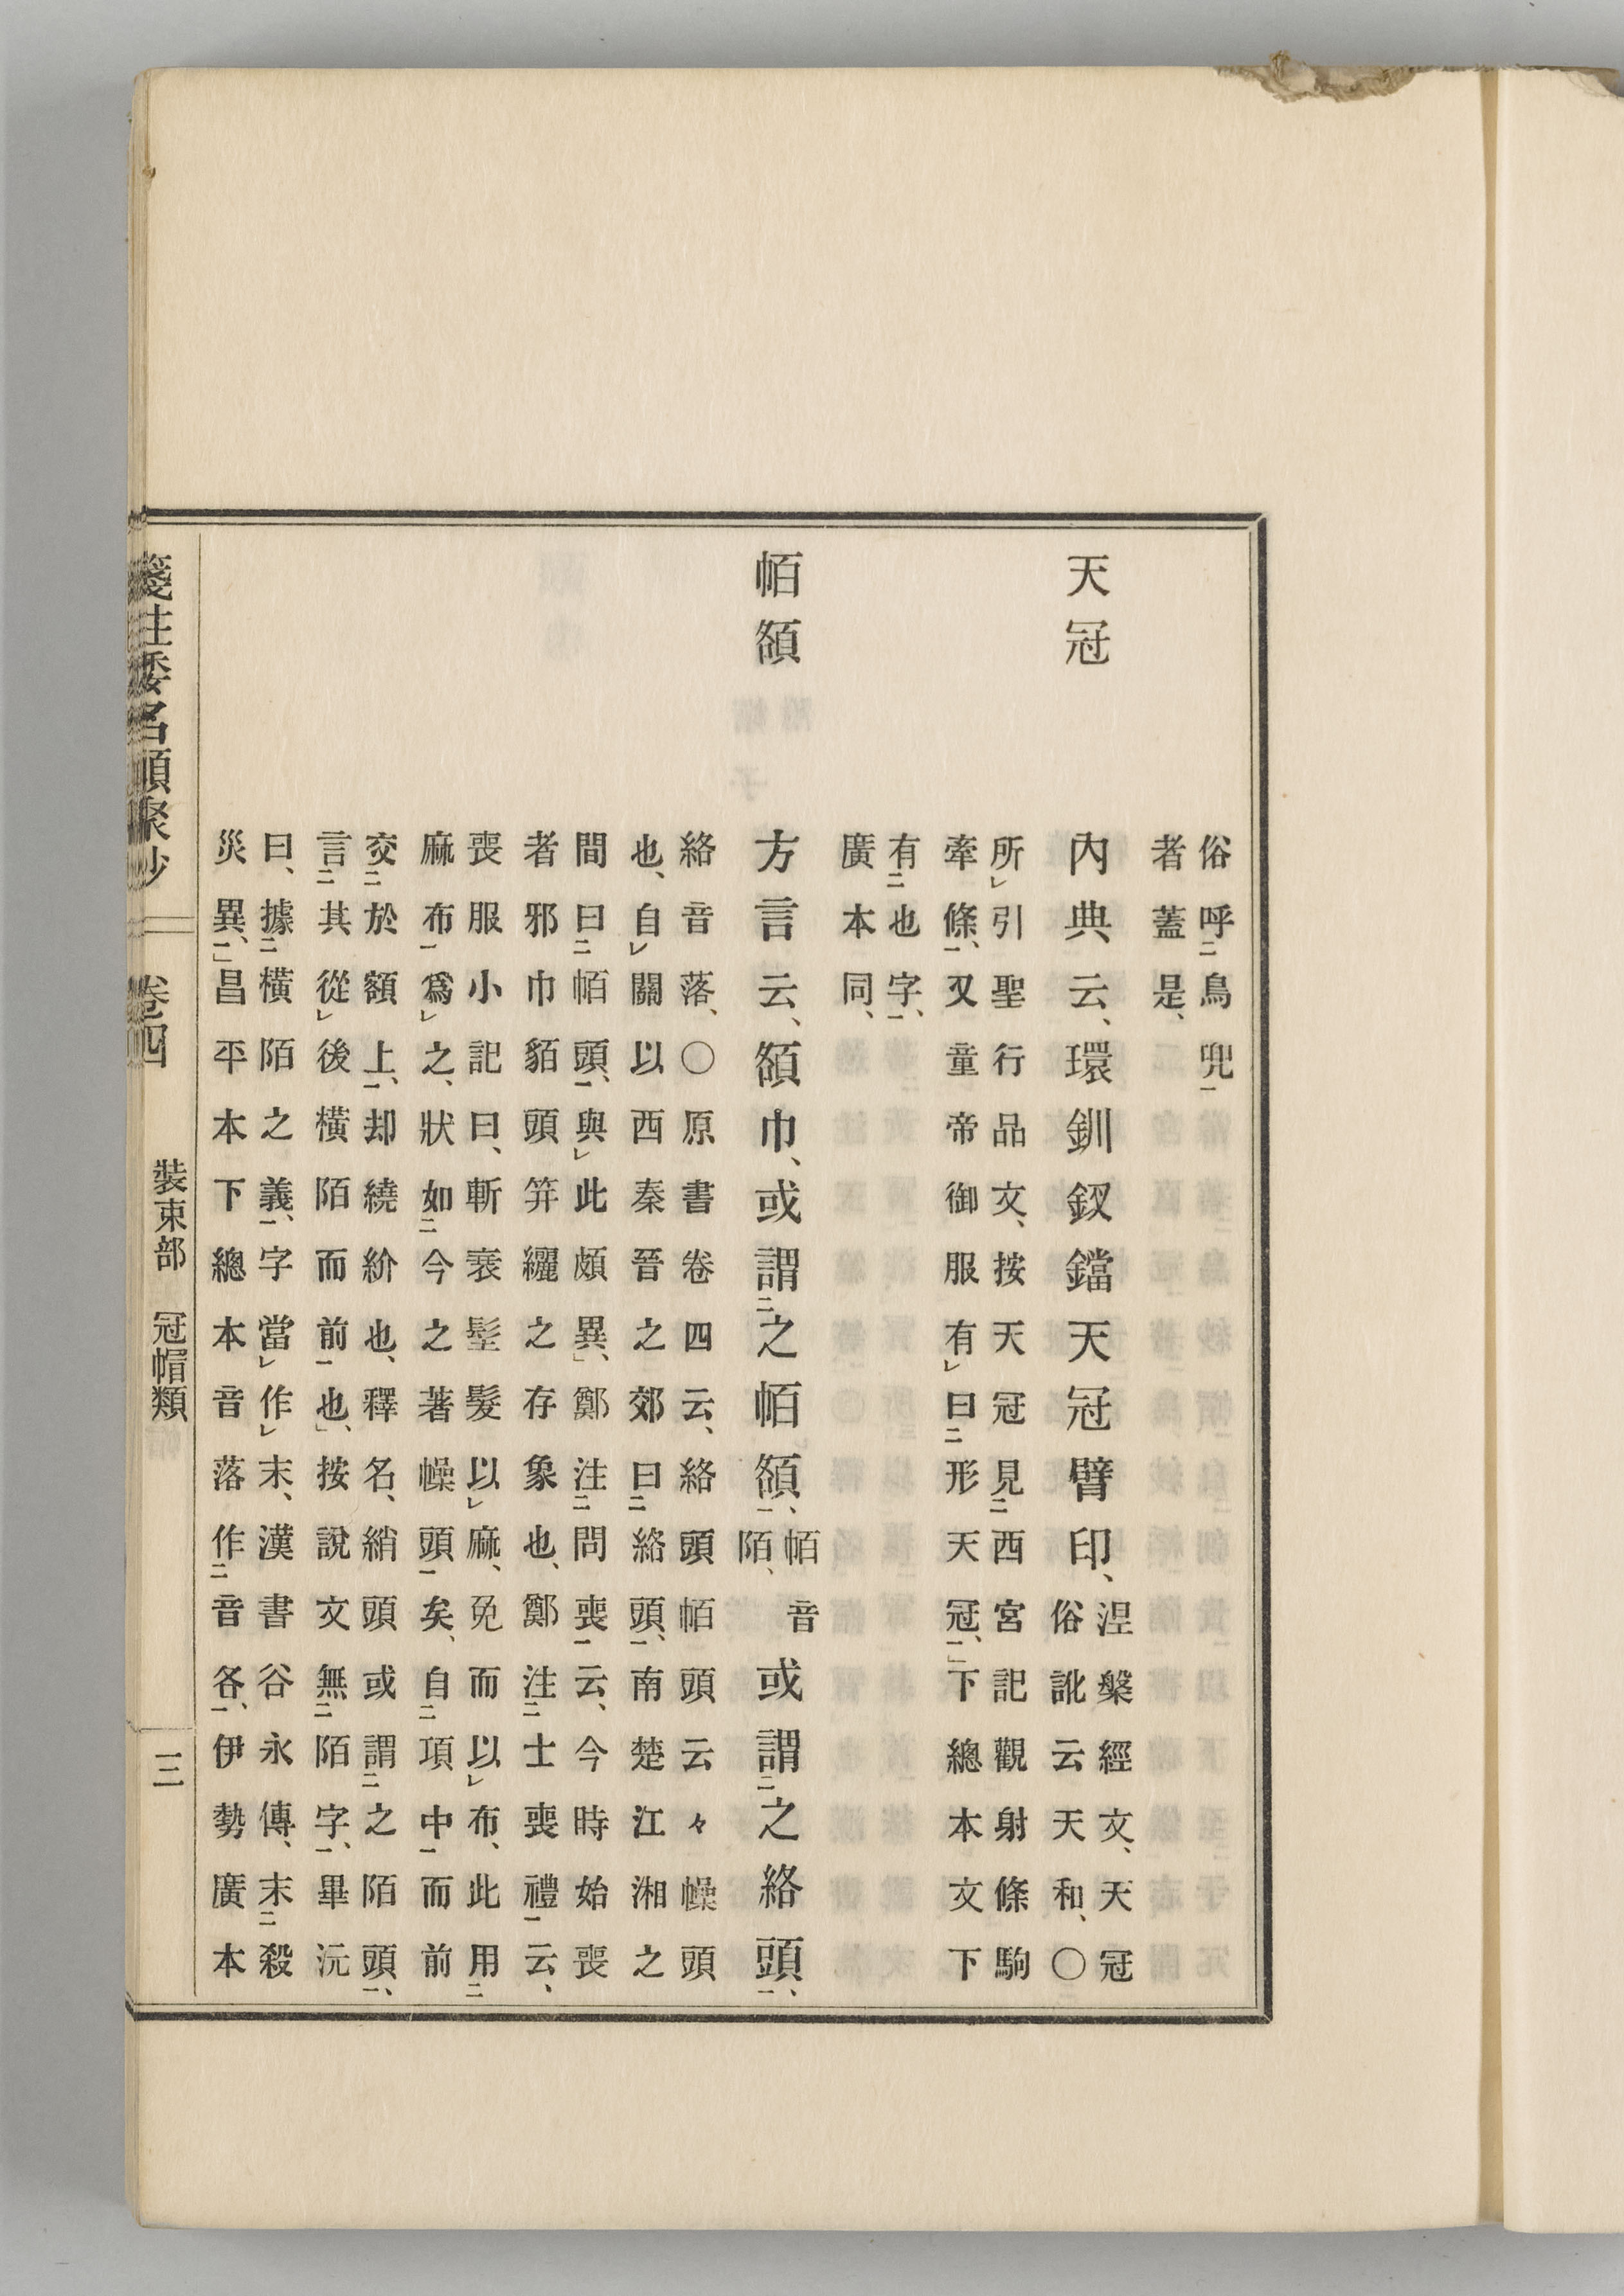 俗呼鳥兜
者蓋是、
天冠
內典云、環釧釵鐺天冠臂印、
涅槃經文、天冠
俗訛云天和、〇
所引聖行品文、按天冠見西宮記觀射條駒
牽條、又童帝御服有曰形天冠、下總本文下
有也字、
廣本同、
帞額
方言云、額巾、或謂之帞額、
帞音
陌、
或謂之絡頭、
絡音落、〇原書卷四云、絡頭帞頭云々幧頭
也、自關以西秦晉之郊曰絡頭、南楚江湘之
間曰帞頭、與此頗異、鄭注問喪云、今時始喪
者邪巾貊頭笄纚之存象也、鄭注士喪禮云、
喪服小記曰、斬衰髽髮以麻、免而以布、此用
麻布爲之、狀如今之著幧頭矣、自項中而前
交於額上、却繞紒也、釋名、綃頭或謂之陌頭、
言其從後橫陌而前也、按說文無陌字、畢沅
曰、據橫陌之義、字當作末、漢書谷永傳、末殺
災異、昌平本下總本音落作音各、伊勢廣本
箋注倭名類聚抄
卷四
裝束部 冠帽類
三